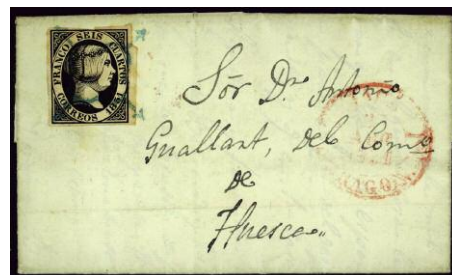 FRANCO SEIS CUARTOS
CORREOS 1851
Sör Dn. Antonio
Guallart, del Come
de
Huesca